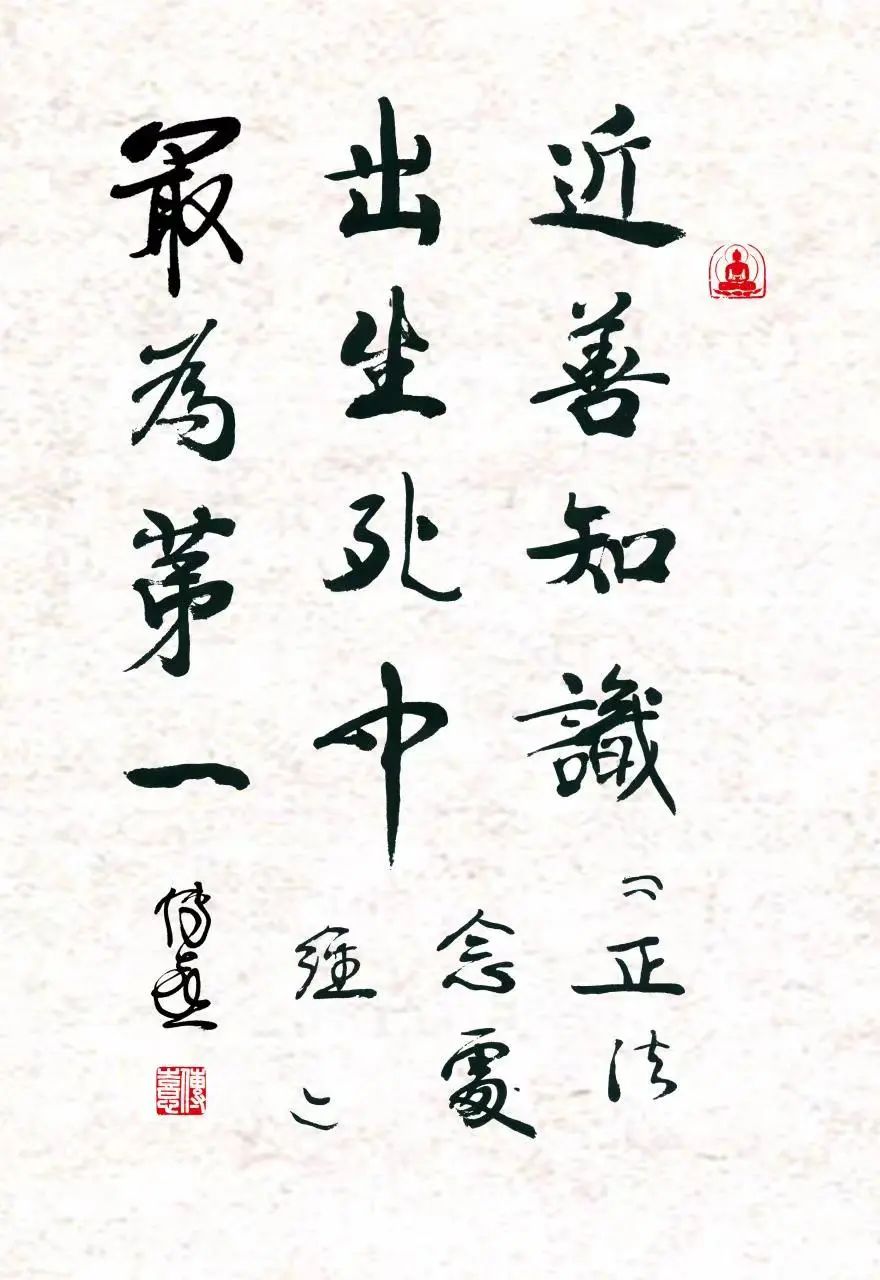 近善知識
出生死中
最為第一
《正法
念處
經》
傳憙
傳憙